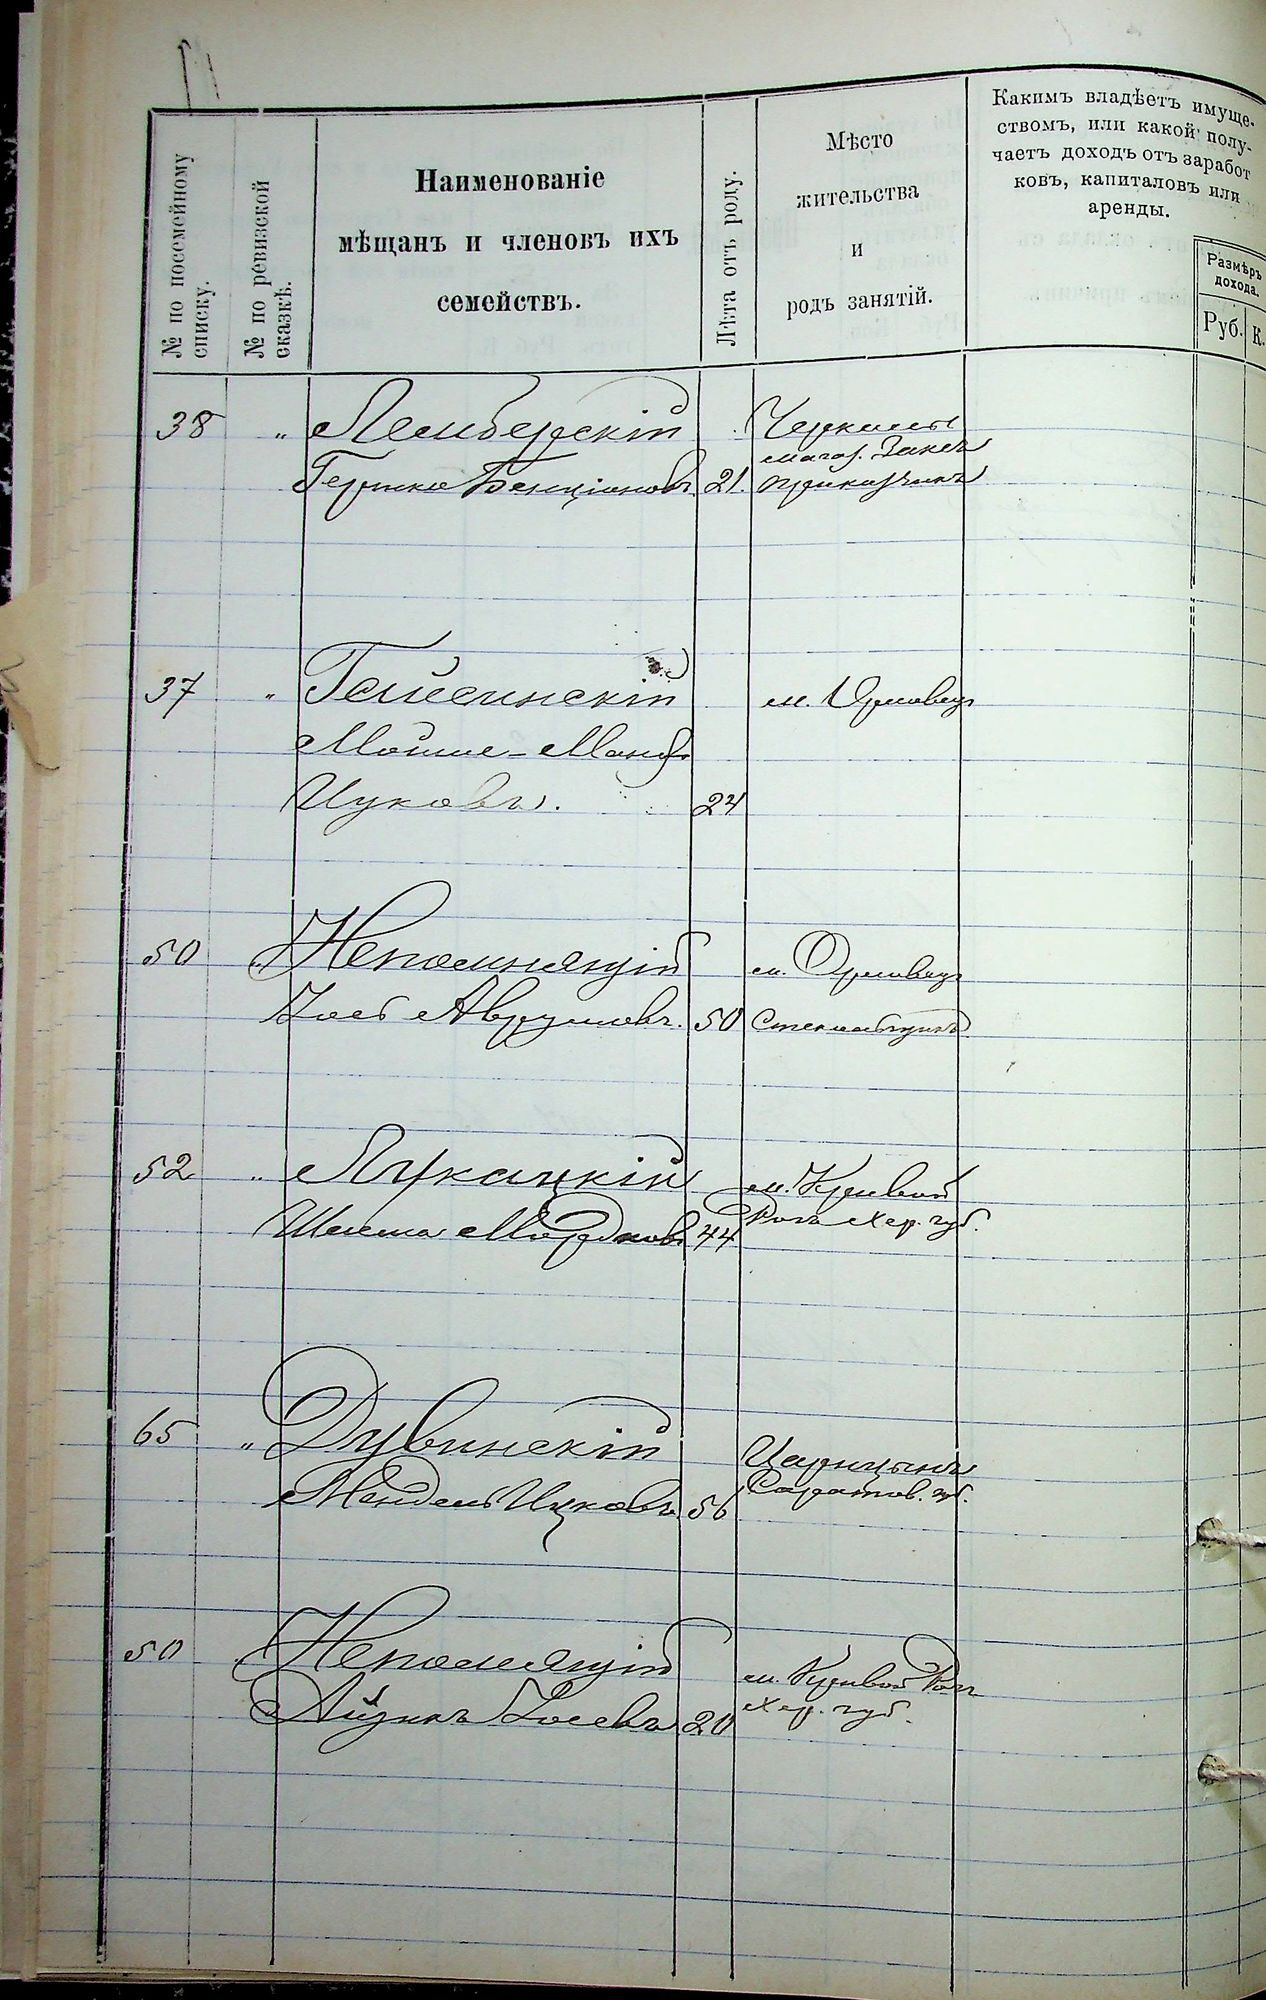 № по посемейному
списку.
№ по ревизской
сказкѣ.
Наименованіе
мѣщанъ и членовъ ихъ
семействъ.
Лѣта отъ роду.
Мѣсто
жительства
и
родъ занятій.
Какимъ владѣетъ имуще-
ствомъ, или какой полу-
чаетъ доходъ отъ заработ
ковъ, капиталовъ или
аренды.
Размѣръ
дохода.
Руб. К.
38 " Лемберскій Черкассы
магаз. Закса
Гершко Бенціоновъ 21. приказчикъ
37 " Гайсинскій м. Орловецъ
Мойше-Манус
Ицковъ. 24
50 " Непомнящій м. Орловецъ
Іосъ Аврумовъ. 50 Стекольщикъ
52 " Лукацкій м. Кривой
Рогъ Хер. губ.
Шлема Мордковъ 44
65 " Дувинскій Царицынъ
Саратов. губ.
Мендель Ицковъ 56
50 Непомнящій м. Кривой Рогъ
Айзикъ Іосевъ 20 Хер. губ.